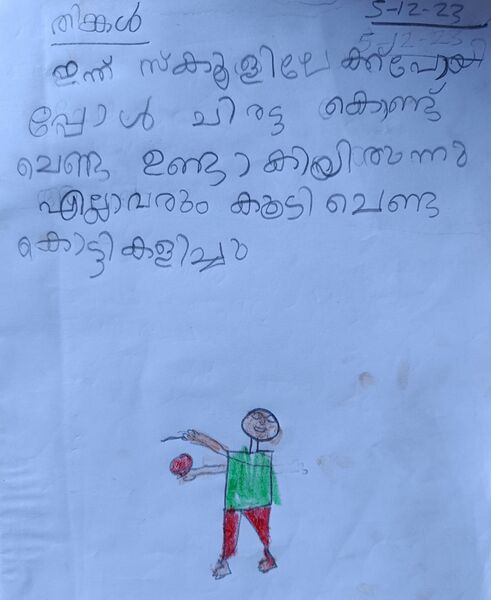 തിങ്കൾ
5-12-23
5-12-23
ഇന്ന് സ്കൂളിലേക്ക്പോയ
പ്പോൾ ചിരട്ട കൊണ്ട്
ചെണ്ട ഉണ്ടാകിയിരുന്നു
എല്ലാവരും കൂടി ചെണ്ട
കൊട്ടികളിച്ചു